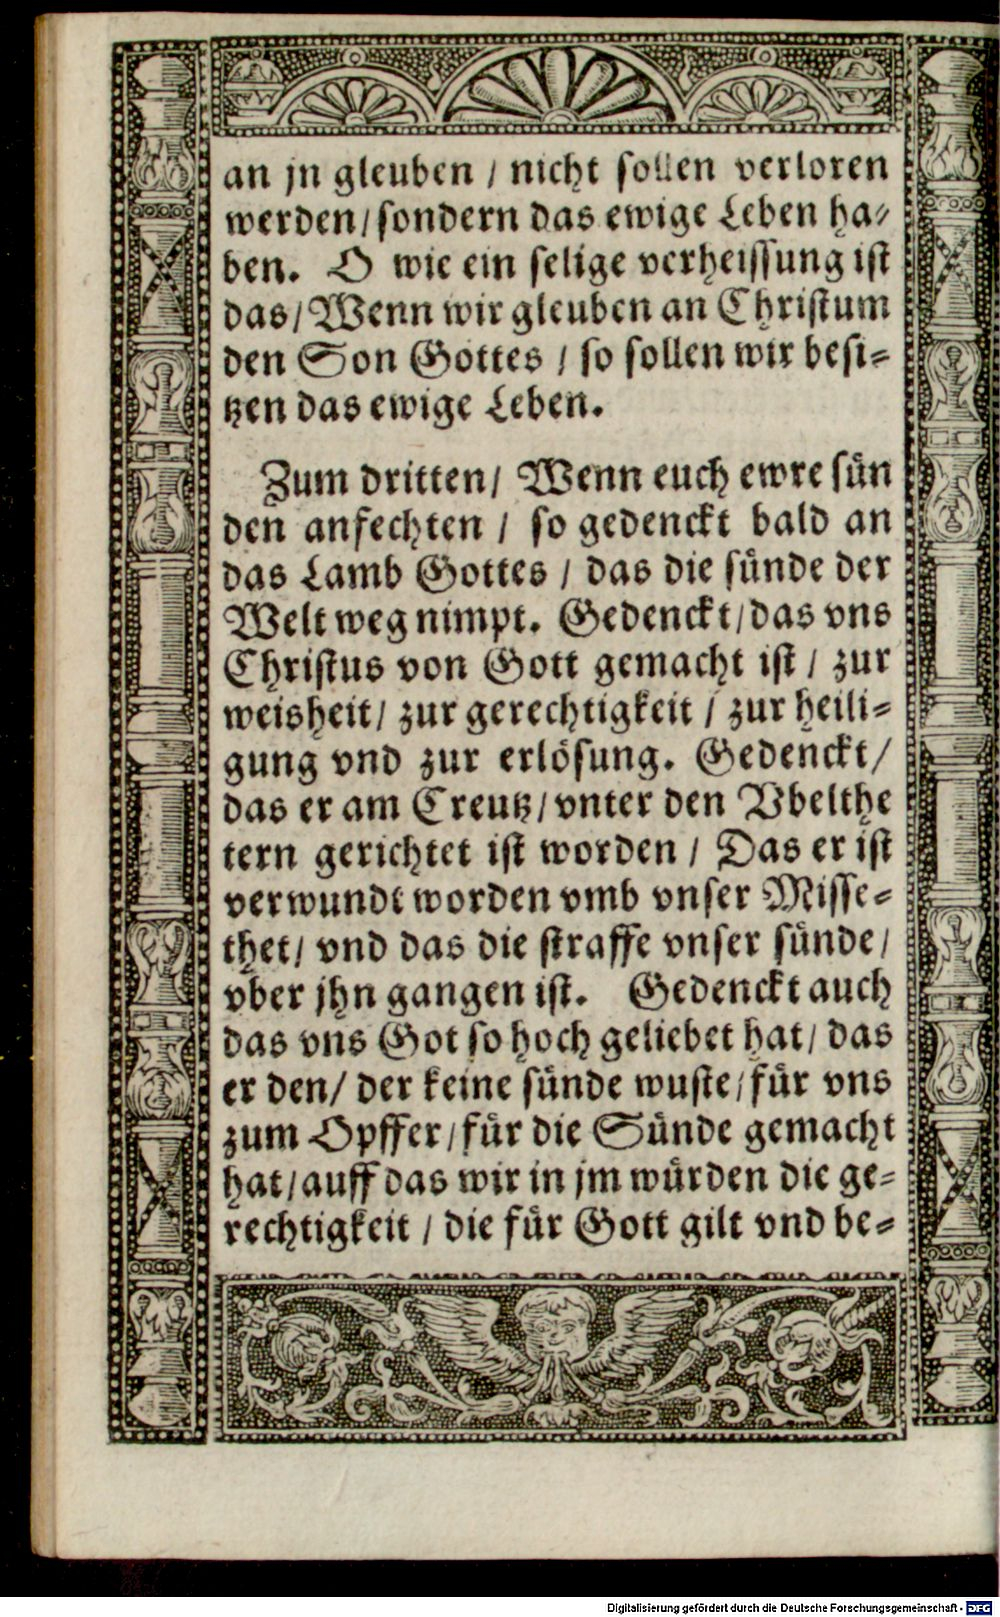 an jn gleuben / nicht sollen verloren
werden/sondern das ewige Leben ha-
ben. O wie ein selige verheissung ist
das/Wenn wir gleuben an Christum
den Son Gottes / so sollen wir besi-
tzen das ewige Leben.
Zum dritten/ Wenn euch ewre sün
den anfechten / so gedenckt bald an
das Lamb Gottes / das die sünde der
Welt weg nimpt. Gedenckt/das vns
Christus von Gott gemacht ist / zur
weisheit/ zur gerechtigkeit / zur heili-
gung vnd zur erlösung. Gedenckt/
das er am Creutz/vnter den Vbelthe
tern gerichtet ist worden / Das er ist
verwundt worden vmb vnser Misse-
thet/ vnd das die straffe vnser sünde/
vber jhn gangen ist. Gedenckt auch
das vns Got so hoch geliebet hat/ das
er den/ der keine sünde wuste/für vns
zum Opffer/für die Sünde gemacht
hat/auff das wir in jm würden die ge-
rechtigkeit / die für Gott gilt vnd be-
Digitalisierung gefördert durch die Deutsche Forschungsgemeinschaft - DFG